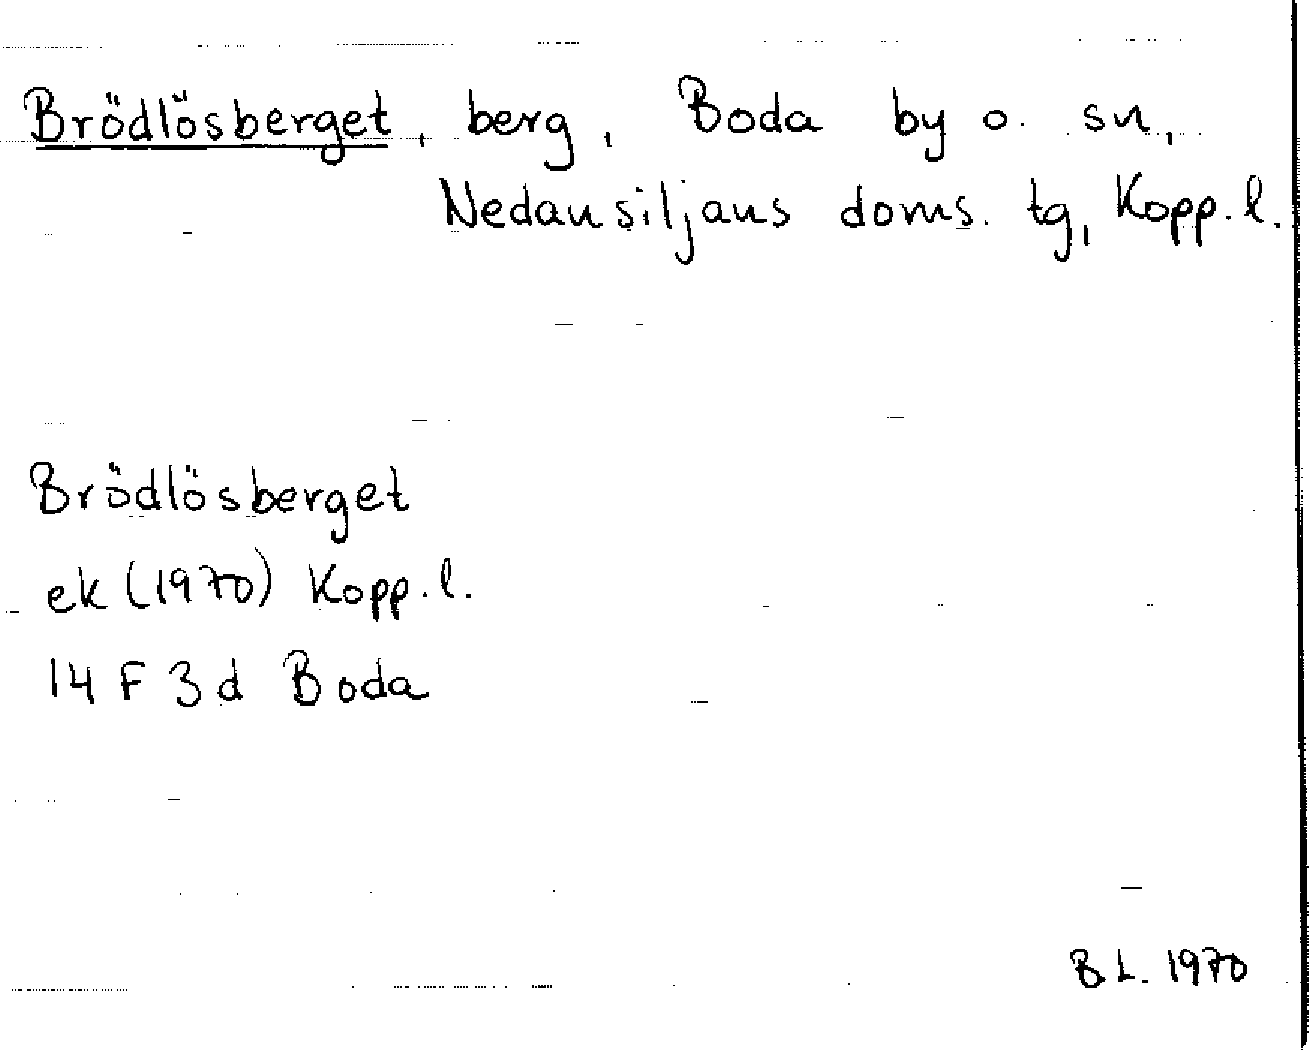 Brödlösberget, berg, Boda by o. sn,
Nedansiljans doms. tg, Kopp. l.
Brödlösberget
ek (1970) Kopp. l.
14 F 3d Boda
B L. 1970